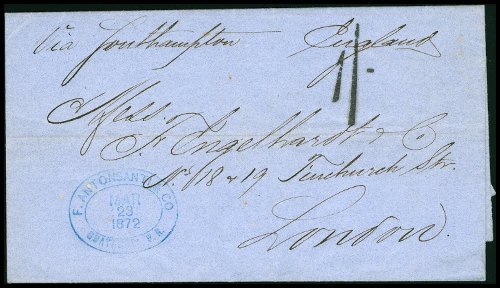 Via Southampton England
1/-
Mess.
F. Engelhardt & C.
No 18 & 19 Finchurch Str.
London.
F. ANTONSANTI & CO
MAR
23
1872
P.R.